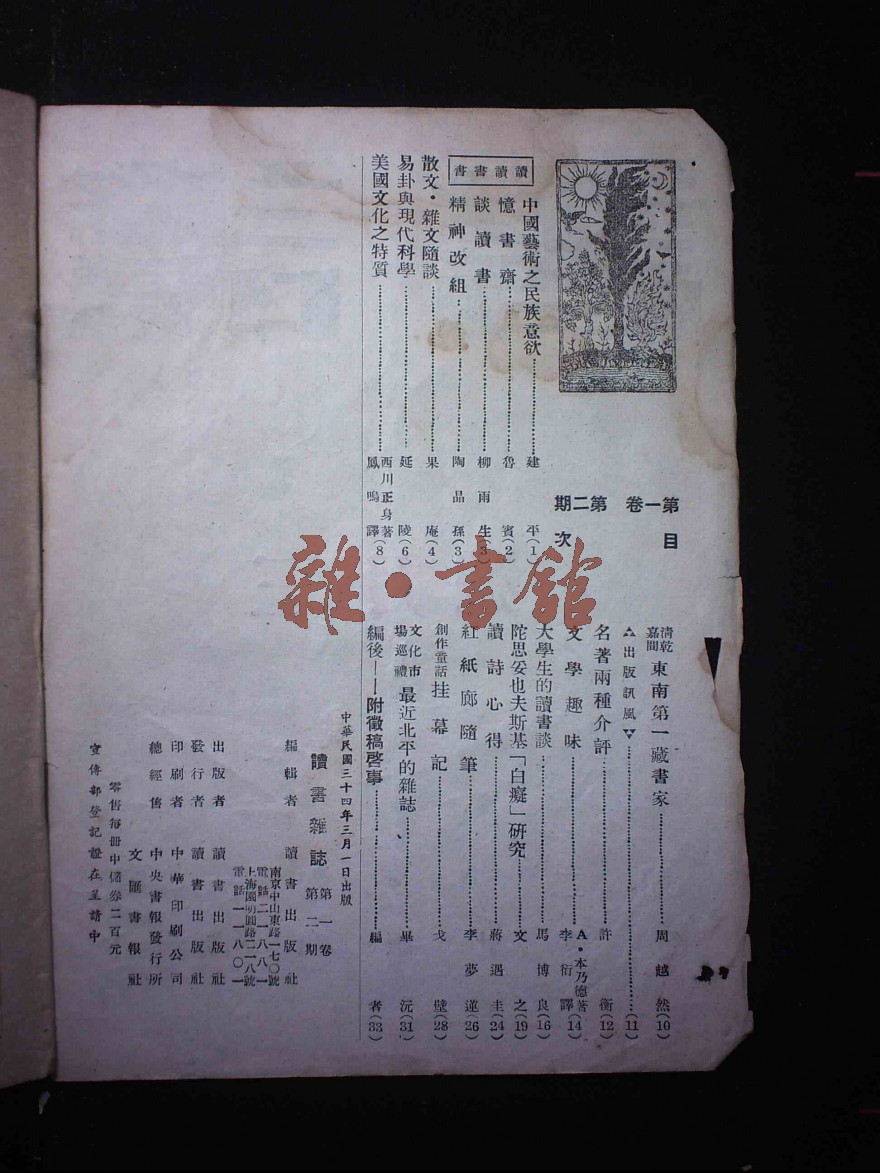 第一卷 第二期
目次
中國藝術之民族意欲……建平(1)
讀書讀書
憶書齋……魯賓(2)
談讀書……柳雨生(3)
精神改組……陶晶孫(3)
散文·雜文隨談……果庵(4)
易卦與現代科學……延陵(6)
美國文化之特質……西川正身著 鳳鳴譯(8)
清乾嘉間 東南第一藏書家……周越然(10)
出版訊風……(11)
名著兩種介評……許衡(12)
文學趣味……A·本乃德著 李衍譯(14)
大學生的讀書談……馬博良(16)
陀思妥也夫斯基「白癡」研究……文之(19)
讀詩心得……蔣遇圭(24)
紅紙廊隨筆……李夢蓮(26)
創作童話 挂幕記……戈壁(28)
文化市場巡禮 最近北平的雜誌……畢沅(31)
編後——附徵稿啓事……編者(33)
中華民國三十四年三月一日出版
讀書雜誌 第一卷 第二期
編輯者 讀書出版社
南京中山東路一七〇號
電話二一八八一
上海圓明園路二一八號
電話一一八〇一
出版者 讀書出版社
發行者 讀書出版社
印刷者 中華印刷公司
總經售 中央書報發行所
文匯書報社
零售每冊中儲券二百元
宣傳部登記證在呈請中
雜·書館